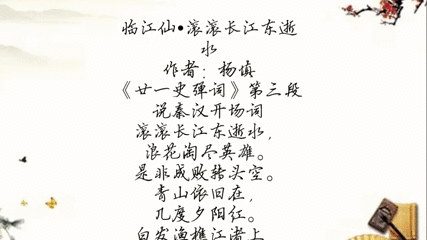 临江仙•滚滚长江东逝
水
作者：杨慎
《廿一史弹词》第三段
说秦汉开场词
滚滚长江东逝水，
浪花淘尽英雄。
是非成败转头空。
青山依旧在，
几度夕阳红。
白发渔樵江渚上